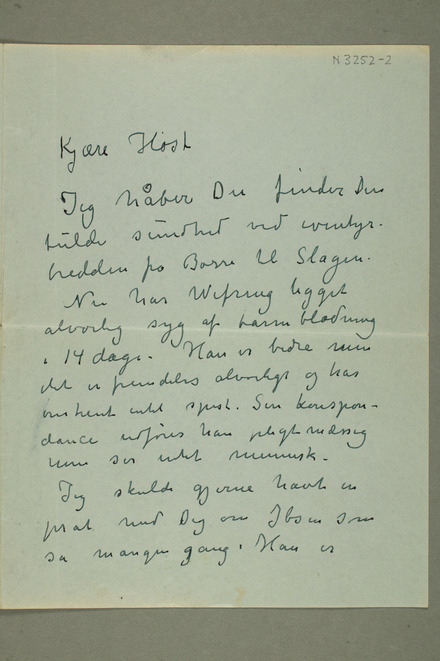 N 3252-2
Kjære Høst
Jeg håber Du finder Din
fulde sundhed ved eventyr-
bredden fra Borre til Slagen.
Nu har Wefring ligget
alvorlig syg af tarmblødning
i 14 dage. Han er bedre men
det er fremdeles alvorligt og har
omtrent intet spist. Sin korrespon-
dance udføres han pligtmæssig
men ser intet menneske.
Jeg skulde gjerne havt en
prat med Dig om Ibsen som
så mangen gang. Han er